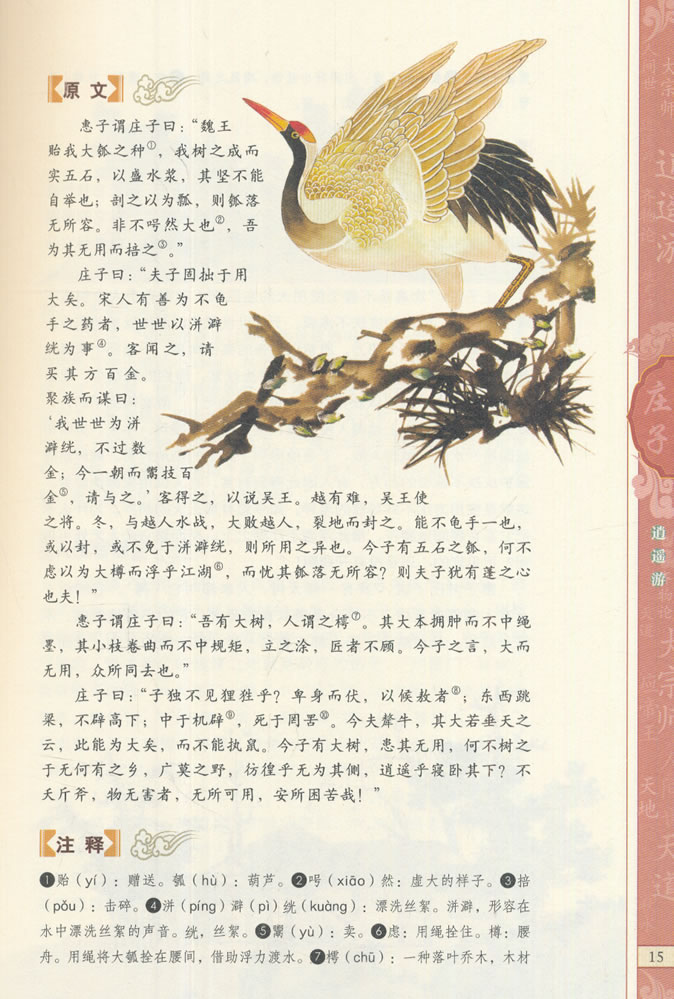 原文
惠子谓庄子曰：“魏王
贻我大瓠之种①，我树之成而
实五石，以盛水浆，其坚不能
自举也；剖之以为瓢，则瓠落
无所容。非不呺然大也②，吾
为其无用而掊之③。”
庄子曰：“夫子固拙于用
大矣。宋人有善为不龟
手之药者，世世以洴澼
絖为事④。客闻之，请
买其方百金。
聚族而谋曰：
‘我世世为洴
澼絖，不过数
金；今一朝而鬻技百
金⑤，请与之。’客得之，以说吴王。越有难，吴王使
之将。冬，与越人水战，大败越人，裂地而封之。能不龟手一也，
或以封，或不免于洴澼絖，则所用之异也。今子有五石之瓠，何不
虑以为大樽而浮乎江湖⑥，而忧其瓠落无所容？则夫子犹有蓬之心
也夫！”
惠子谓庄子曰：“吾有大树，人谓之樗⑦。其大本拥肿而不中绳
墨，其小枝卷曲而不中规矩，立之涂，匠者不顾。今子之言，大而
无用，众所同去也。”
庄子曰：“子独不见狸狌乎？卑身而伏，以候敖者⑧；东西跳
梁，不辟高下；中于机辟⑨，死于罔罟⑩。今夫斄牛，其大若垂天之
云，此能为大矣，而不能执鼠。今子有大树，患其无用，何不树之
于无何有之乡，广莫之野，彷徨乎无为其侧，逍遥乎寝卧其下？不
夭斤斧，物无害者，无所可用，安所困苦哉！”
注释
❶贻（yí）：赠送。瓠（hù）：葫芦。❷呺（xiāo）然：虚大的样子。❸掊
（pǒu）：击碎。❹洴（píng）澼（pì）絖（kuàng）：漂洗丝絮。洴澼，形容在
水中漂洗丝絮的声音。絖，丝絮。❺鬻（yù）：卖。❻虑：用绳拴住。樽：腰
舟。用绳将大瓠拴在腰间，借助浮力渡水。❼樗（chū）：一种落叶乔木，木材
人间世
大宗师
逍遥游
庄子
逍遥游
大宗师
应帝王
天地
天道
15